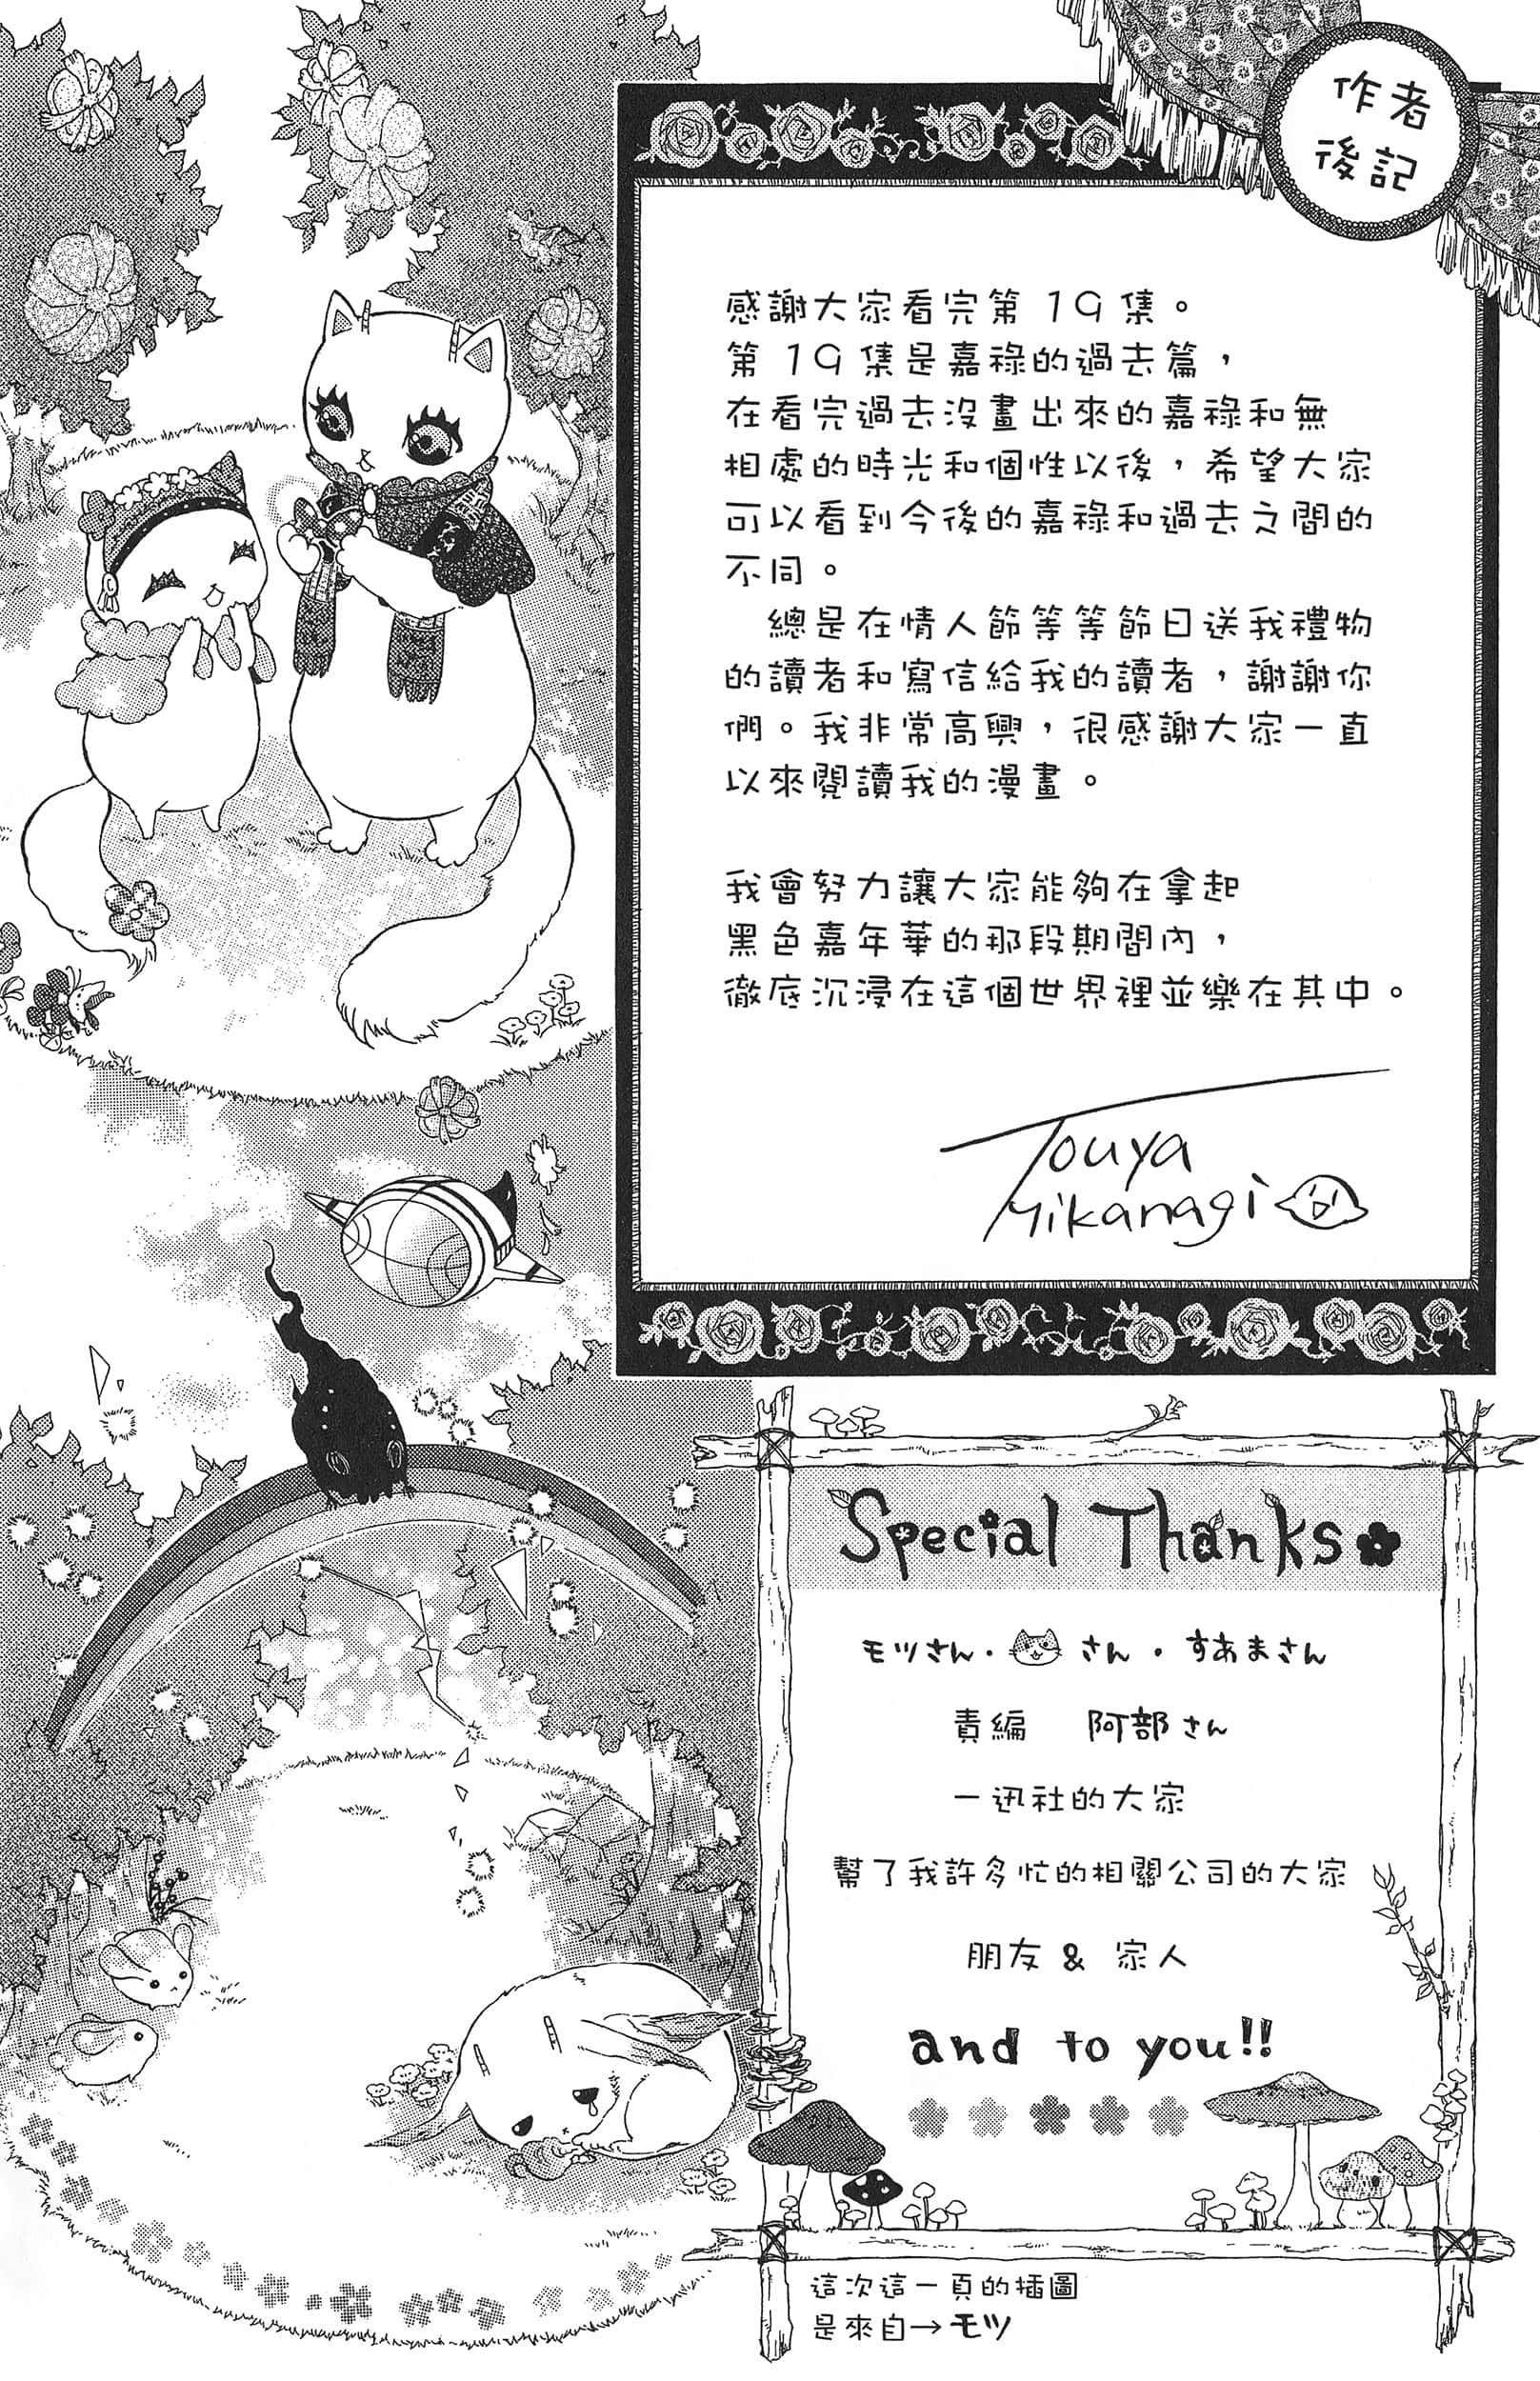 作者
後記
感謝大家看完第19集。
第19集是嘉祿的過去篇，
在看完過去沒畫出來的嘉祿和無
相處的時光和個性以後，希望大家
可以看到今後的嘉祿和過去之間的
不同。
總是在情人節等等節日送我禮物
的讀者和寫信給我的讀者，謝謝你
們。我非常高興，很感謝大家一直
以來閱讀我的漫畫。
我會努力讓大家能夠在拿起
黑色嘉年華的那段期間內，
徹底沉浸在這個世界裡並樂在其中。
Touya
Mikanagi
Special Thanks
モツさん・ さん・すあまさん
責編 阿部さん
一迅社的大家
幫了我許多忙的相關公司的大家
朋友 & 家人
and to you!!
這次這一頁的插圖
是來自→モツ